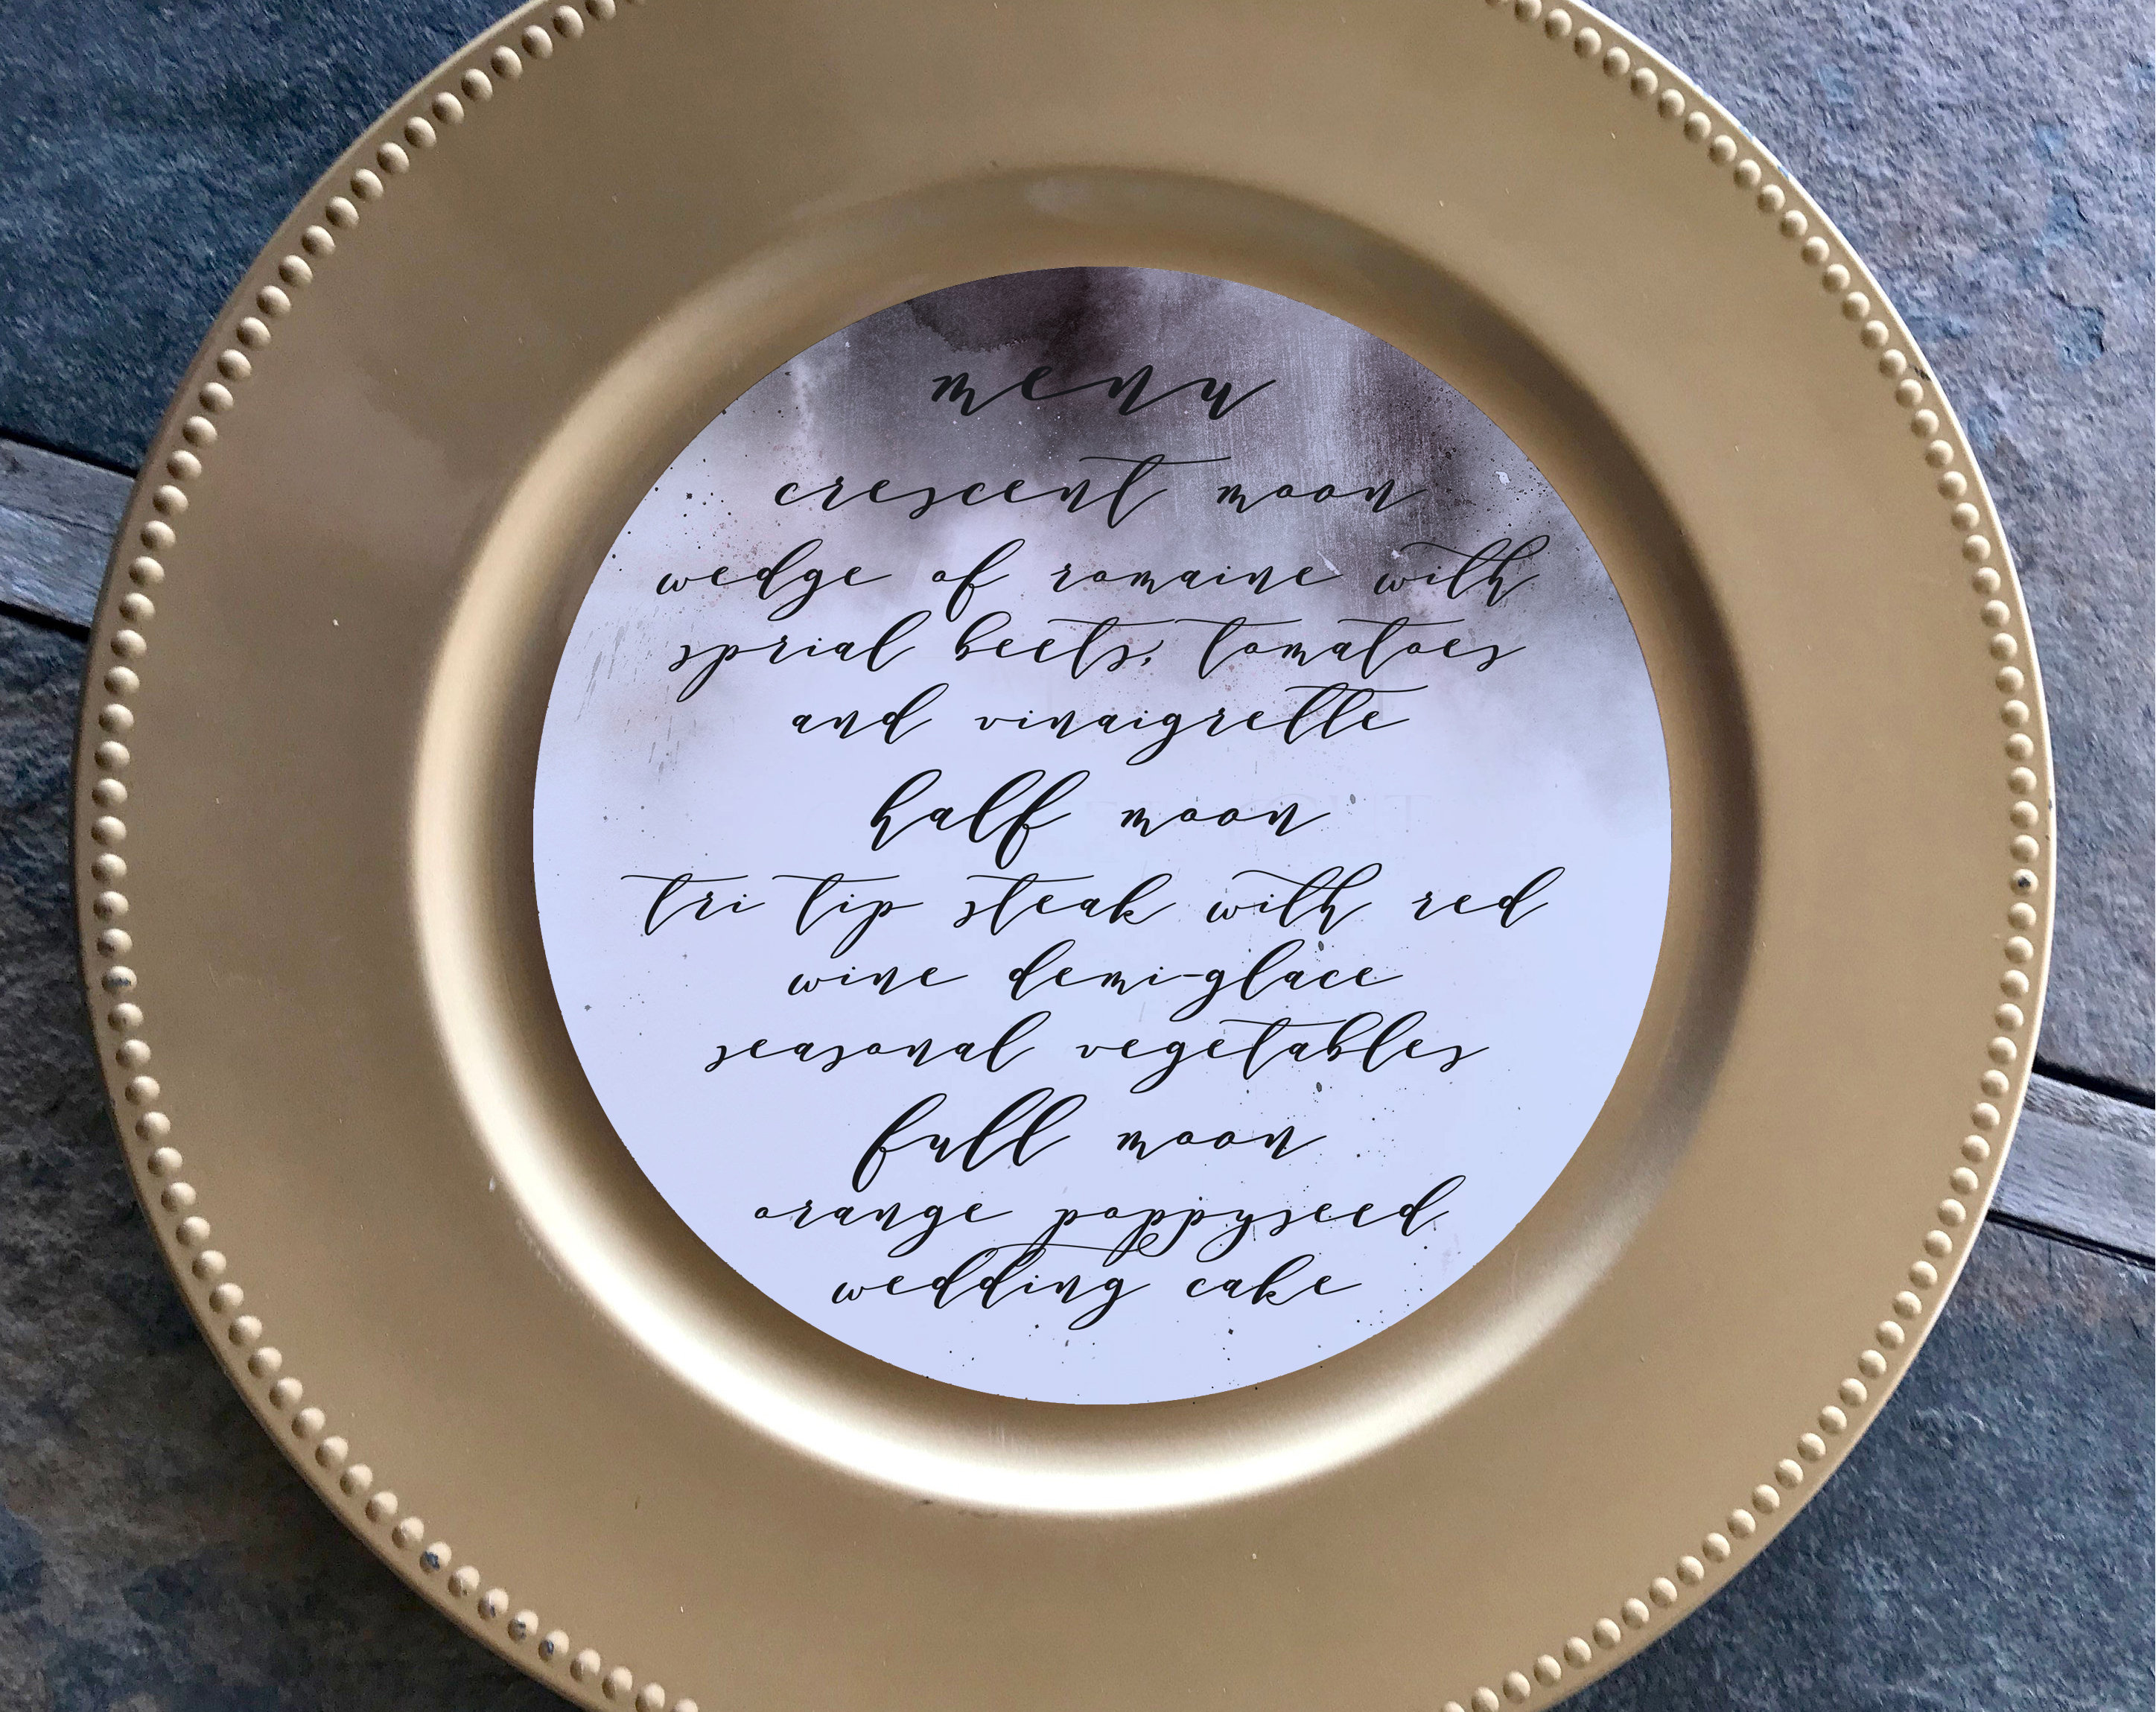 menu
crescent moon
wedge of romaine with
sprial beets, tomatoes
and vinaigrette
half moon
tri tip steak with red
wine demi-glace
seasonal vegetables
full moon
orange poppyseed
wedding cake